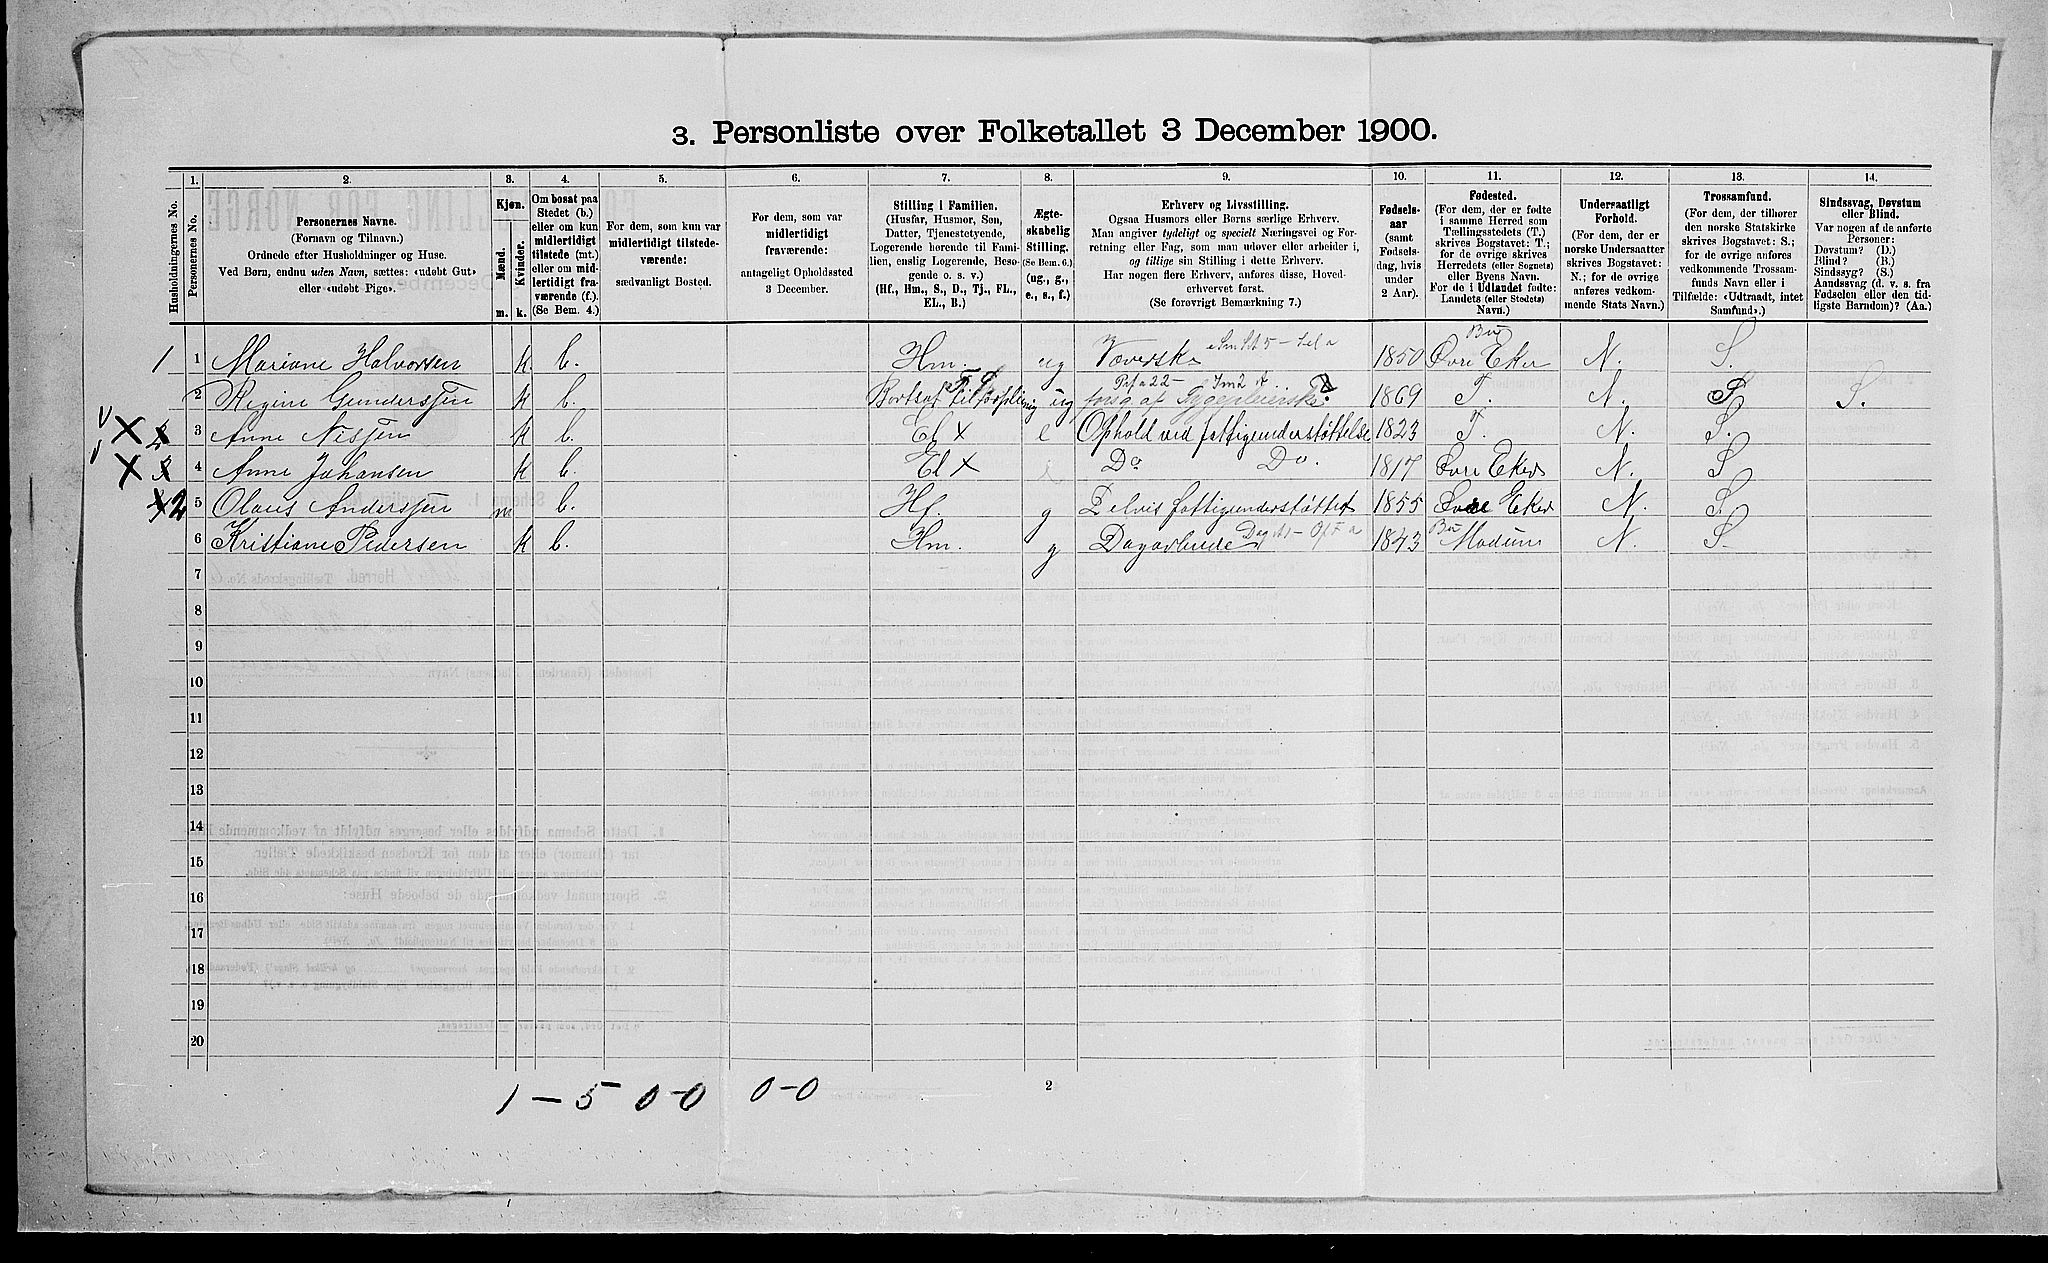 3. Personliste over Folketallet 3 December 1900.
Husholdningernes No.
1. Personernes No.
2.
Personernes Navne.
(Fornavn og Tilnavn.)
Ordnede efter Husholdninger og Huse.
Ved Børn, endnu uden Navn, sættes: «udøbt Gut»
eller «udøbt Pige».
3.
Kjøn.
Mænd. Kvinder.
m. k.
4.
Om bosat paa
Stedet (b.)
eller om kun
midlertidigt
tilstede (mt.)
eller om mid-
lertidigt fra-
værende (f.).
(Se Bem. 4.)
5.
For dem, som kun var
midlertidigt tilstede-
værende:
sædvanligt Bosted.
6.
For dem, som var
midlertidigt
fraværende:
antageligt Opholdssted
3 December.
7.
Stilling i Familien.
(Husfar, Husmor, Søn,
Datter, Tjenestetyende,
Logerende hørende til Fami-
lien, enslig Logerende, Besø-
gende o. s. v.)
(Hf., Hm., S., D., Tj., FL.,
EL., B.)
8.
Ægte-
skabelig
Stilling.
(Se Bem. 6.)
(ug., g.,
e., s., f.)
9.
Erhverv og Livsstilling.
Ogsaa Husmors eller Børns særlige Erhverv.
Man angiver tydeligt og specielt Næringsvei og For-
retning eller Fag, som man udøver eller arbeider i,
og tillige sin Stilling i dette Erhverv.
Har nogen flere Erhverv, anføres disse, Hoved-
erhvervet først.
(Se forøvrigt Bemærkning 7.)
10.
Fødsels-
aar
(samt
Fødsels-
dag, hvis
under
2 Aar).
11.
Fødested.
(For dem, der er fødte
i samme Herred som
Tællingsstedets (T.)
skrives Bogstavet: T.;
for de øvrige skrives
Herredets (eller Sognets)
eller Byens Navn.
For de i Udlandet fødte:
Landets (eller Stedets)
Navn.)
12.
Undersaatligt
Forhold.
(For dem, der er
norske Undersaatter
skrives Bogstavet:
N.; for de øvrige
anføres vedkom-
mende Stats Navn.)
13.
Trossamfund.
(For dem, der tilhører
den norske Statskirke
skrives Bogstavet: S.;
for de øvrige anføres
vedkommende Trossam-
funds Navn eller i
Tilfælde: «Udtraadt, intet
Samfund».)
14.
Sindssvag, Døvstum
eller Blind.
Var nogen af de anførte
Personer:
Døvstum? (D.)
Blind? (B.)
Sindssyg? (S.)
Aandssvag (d. v. s. fra
Fødselen eller den tid-
ligste Barndom)? (Aa.)
1 1 Mariane Halvorsen k. b. Hm. ug Væverske 1850 Bu Øvre Eker N. S.
2 Regine Gundersen k b. ug 1869 T. N. S S.
X 3 Anne Nisjen k b. El X e Ophold ved fattigunderstøttelse 1823 T. N. S.
X 4 Anne Johansen k b. El X Do Do. 1817 Øvre Eker N. S
2 5 Olaus Andersen m b. Hf. g Delvis fattigunderstøttet 1855 Øvre Eker N. S
6 Kristiane Pedersen k b. Hm. g 1843 Bu Modum N. S.
7
8
9
10
11
12
13
14
15
16
17
18
19
20
1 – 5 0-0 0-0
2